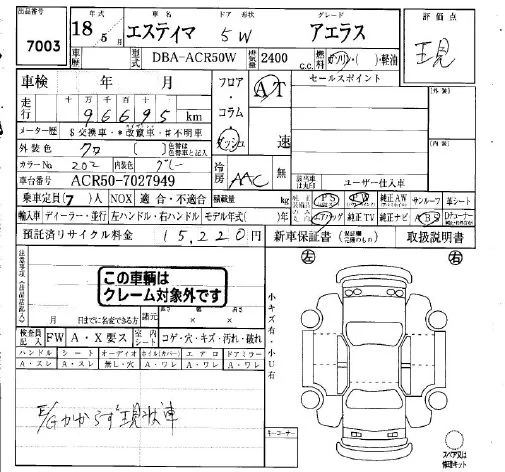 出品番号 年式 車名 ドア 形状 グレード 評価点
7003 18年5月 エスティマ 5W アエラス 現
車歴 型式 DBA-ACR50W 排気量 2400 c.c. 燃料 ガソリン・( )・軽油
車検 年 月 フロア・コラム・ダッシュ AT 速 セールスポイント
走行 十万千百十 96695 km
メーター歴 $交換車・*改竄車・#不明車
外装色 クロ
カラーNo 202 内装色 グレー 冷房 AAC 無
車台番号 ACR50-7027949 ユーザー仕入車
乗車定員(7)人 NOX 適合・不適合 積載量 kg PS PW 純正AW サンルーフ 革シート
輸入車 ディーラー・並行 左ハンドル・右ハンドル モデル年式( )年 エアバッグ 純正TV 純正ナビ ABS
預託済リサイクル料金 15,220円 新車保証書 取扱説明書
左 右
この車輌は
クレーム対象外です
月 日までに名変できる方 諸元 × ×
小キズ有・小U有
検査員記入 FW A・X要ス 室内シート コゲ・穴・キズ・汚れ・破れ
ハンドル シート オーディオ ホイル(カバー) エアロ ドアミラー
A・スレ A・スレ 無し・穴 A・ワレ A・ワレ A・ワレ
E/Gかからず現状車
キーコーナー
スペア又は
修理キット